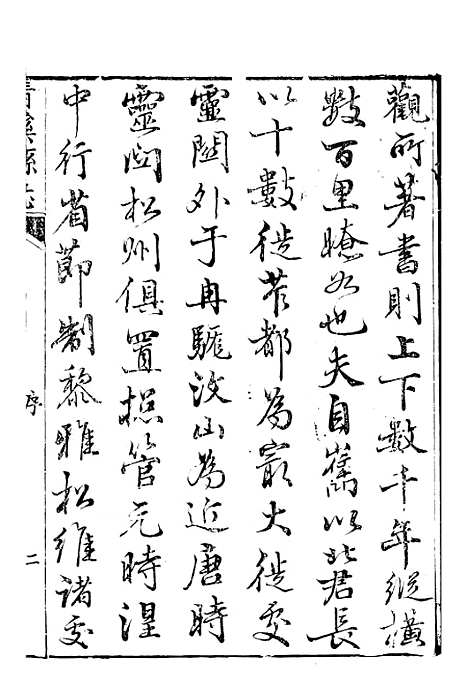 觀所著書則上下數千年縱橫
數百里瞭如也夫自嶲以北君長
以十數徙莋都為最大徙交
靈關外于冉駹汶山為近唐時
靈關松州俱置總管元時浧
中行省節制黎雅松維諸交
清溪縣志
序
二